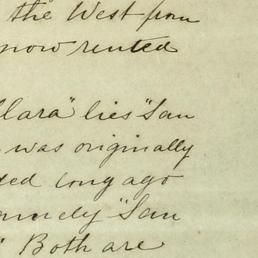 the West from
now rented
Clara" lies "San
was originally
ded long ago
namely "San
" Both are